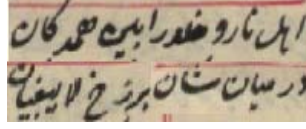 اهل نار و خلد را بین همدکان
در میان شان برزخ لایبغیان